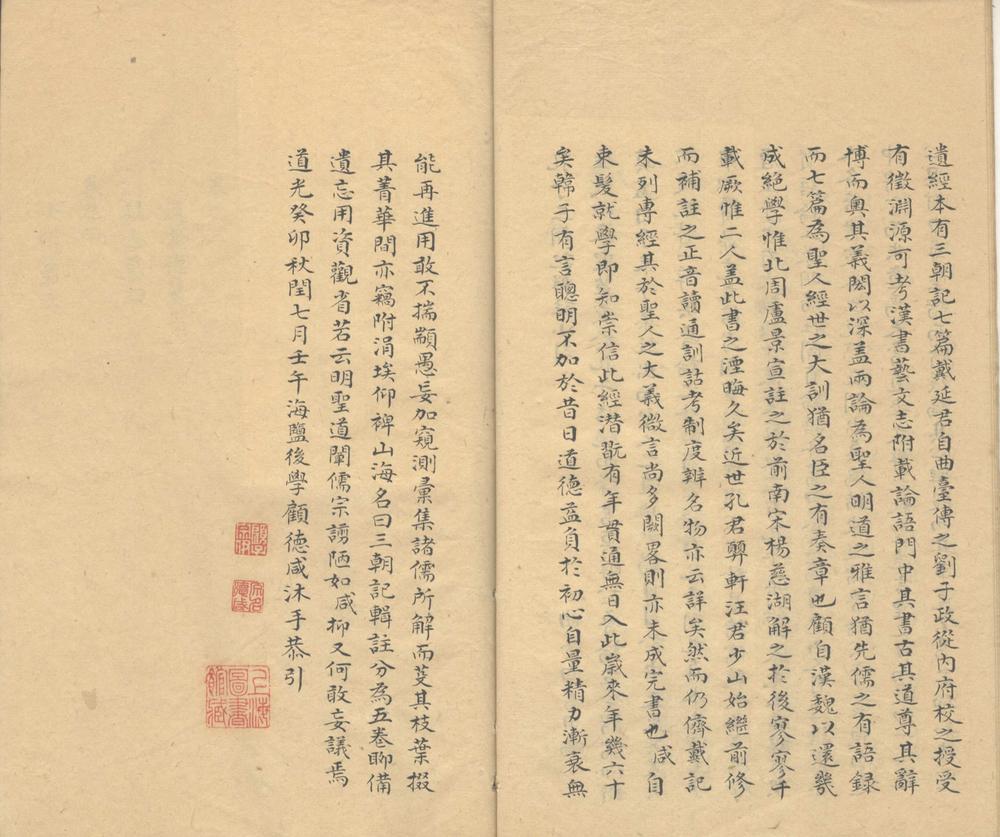 遺經本有三朝記七篇戴延君自曲臺傳之劉子政從內府校之授受
有徵淵源可考漢書藝文志附載論語門中其書古其道尊其辭
博而奧其義閎以深盖兩論為聖人明道之雅言猶先儒之有語録
而七篇為聖人經世之大訓猶名臣之有奏章也顧自漢魏以還幾
成絕學惟北周盧景宣註之於前南宋楊慈湖解之於後寥寥千
載厥惟二人盖此書之湮晦久矣近世孔君顨軒汪君少山始繼前修
而補註之正音讀通訓詁考制度辨名物亦云詳矣然而仍儕戴記
未列專經其於聖人之大義微言尚多闕畧則亦未成完書也咸自
束髮就學即知崇信此經潜翫有年貫通無日入此嵗來年幾六十
矣韓子有言聰明不加於昔日道德益負於初心自量精力漸衰無
能再進用敢不揣顓愚妄加窺測彙集諸儒所解而芟其枝葉掇
其菁華間亦竊附涓埃仰裨山海名曰三朝記輯註分為五卷聊備
遺忘用資觀省若云明聖道闡儒宗謭陋如咸抑又何敢妄議焉
道光癸卯秋閏七月壬午海鹽後學顧德咸沐手恭引
上海圖書館藏